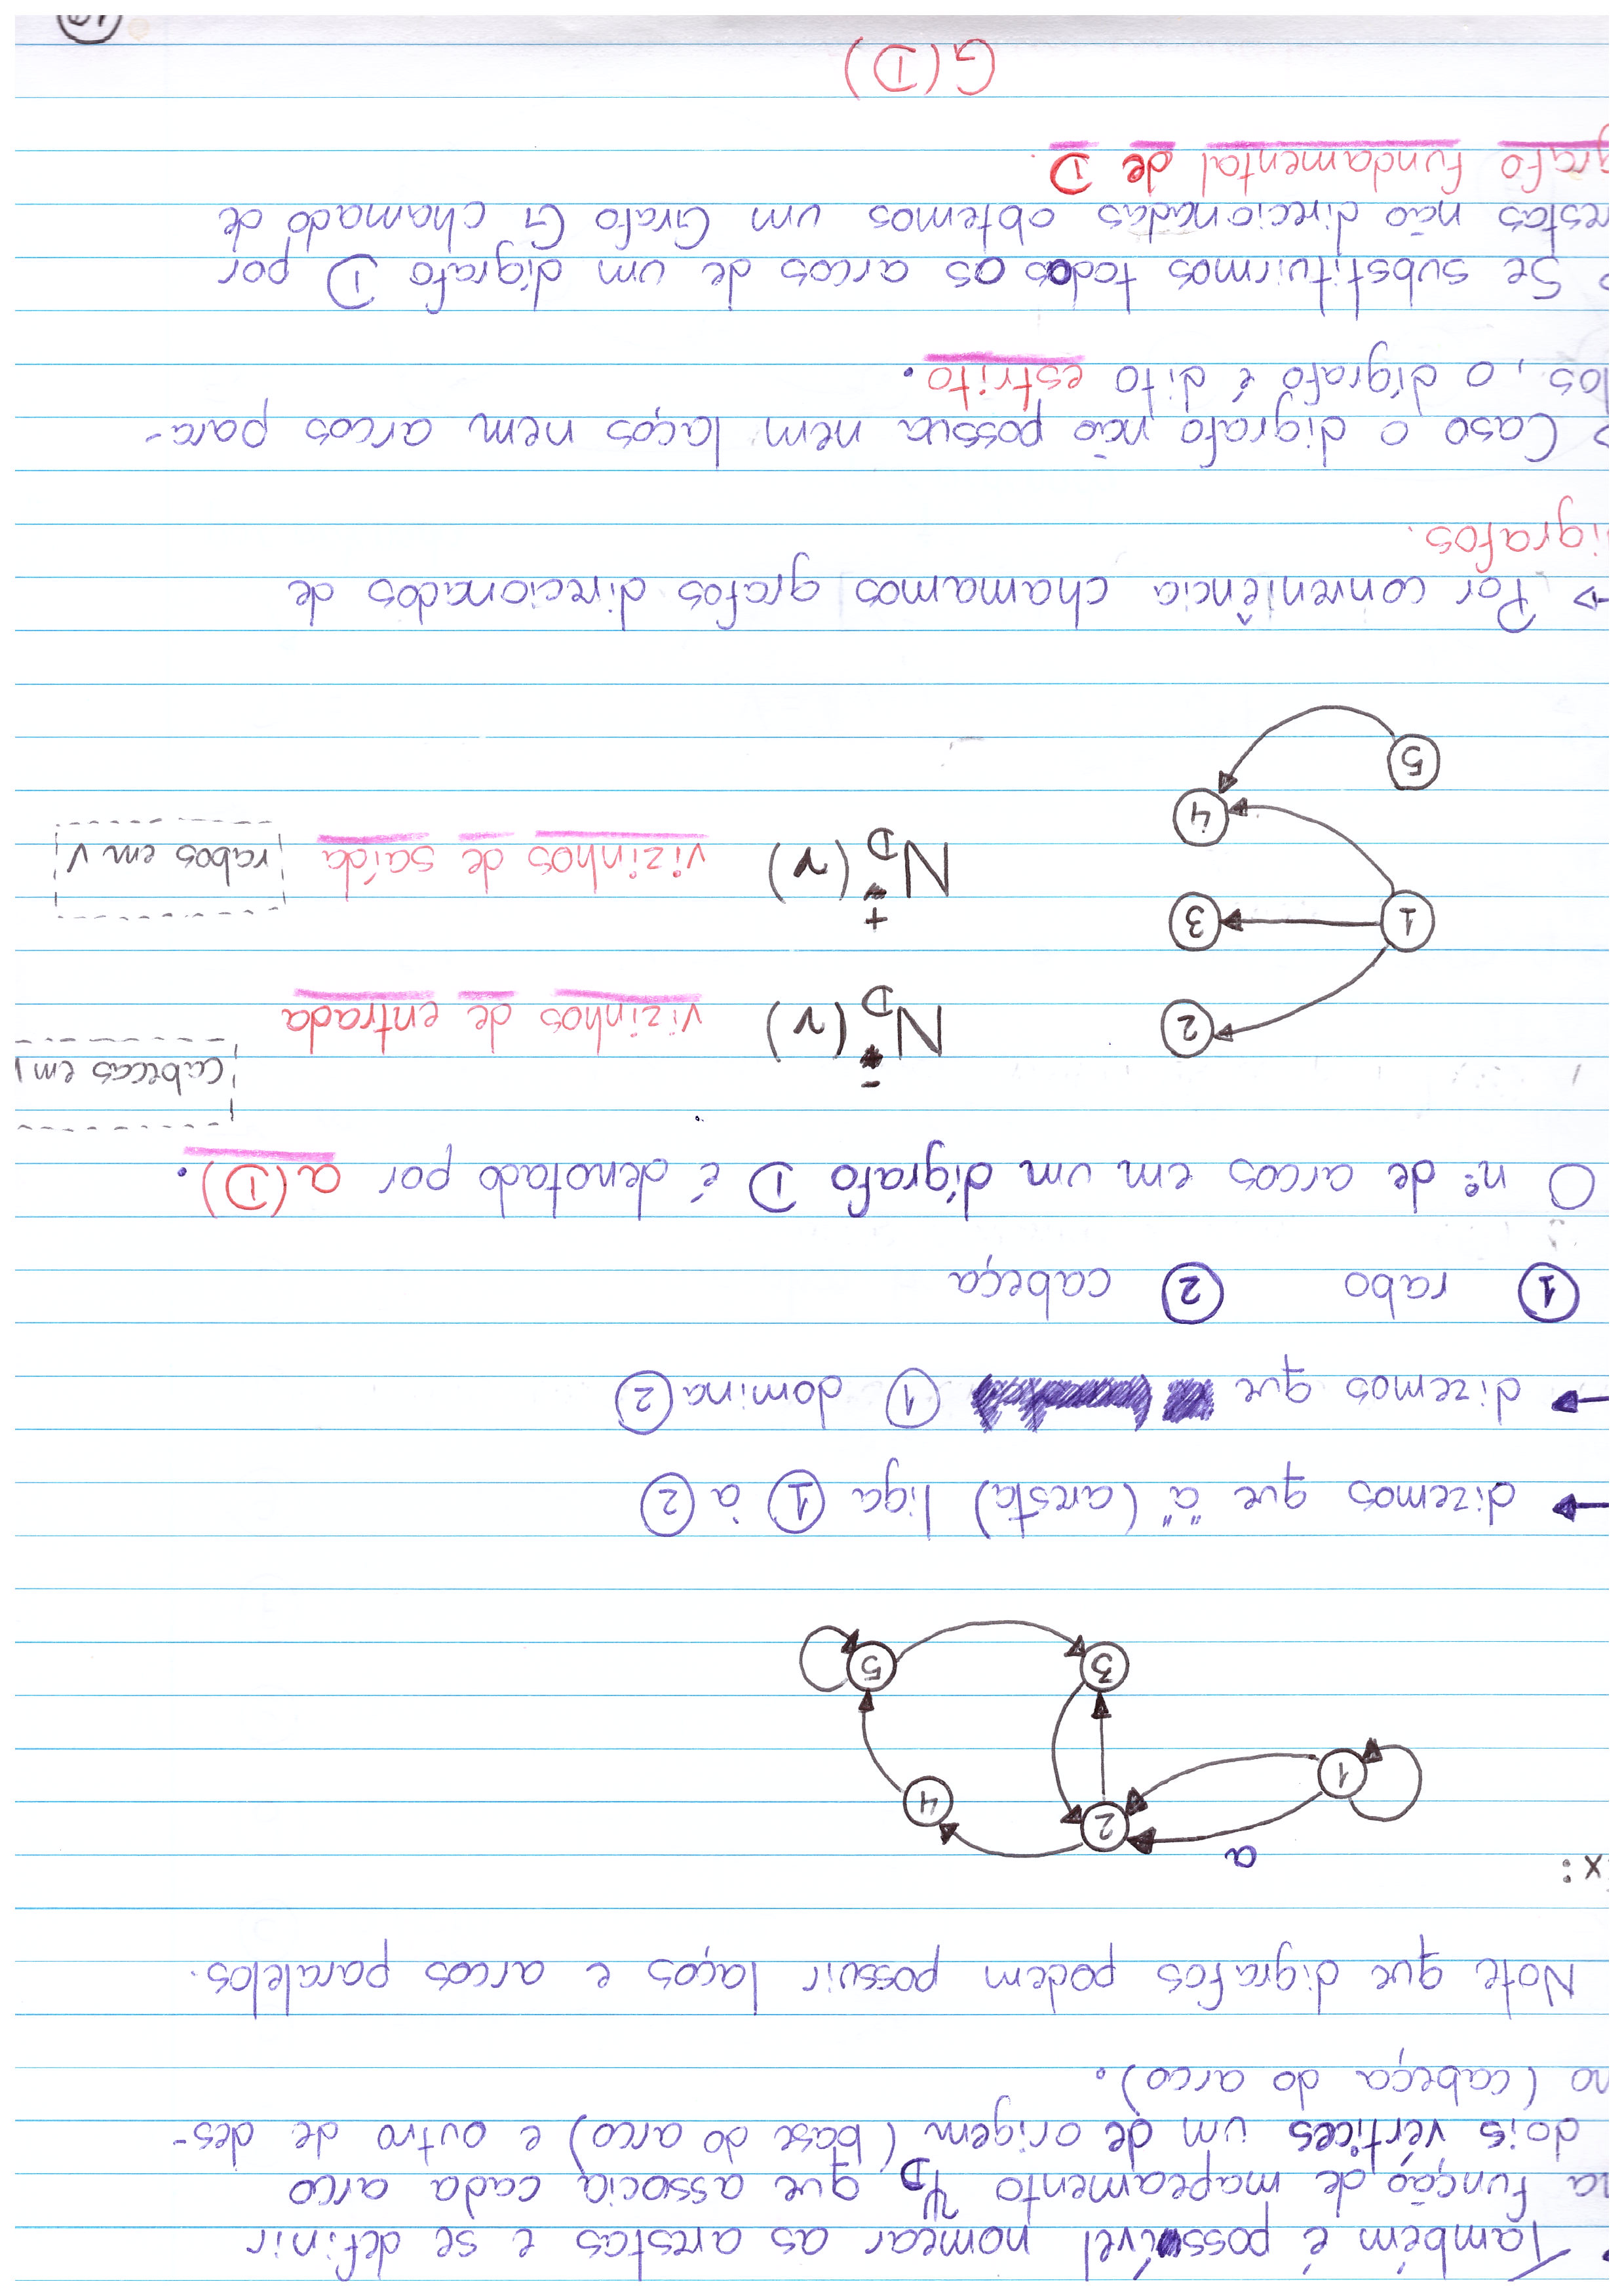 Também é possível nomear as arestas e se definir
na função de mapeamento ΨD que associa cada arco
dois vértices um de origem (base do arco) e outro de des-
no (cabeça do arco).
Note que digrafos podem possuir laços e arcos paralelos.
x:
a
2
4
1
3
5
→ dizemos que "a" (aresta) liga 1 à 2
→ dizemos que 1 domina 2
1 rabo 2 cabeça
O nº de arcos em um dígrafo D é denotado por a(D).
cabecas em v
2
N⁻D(v) vizinhos de entrada
1
3
N⁺D(v) vizinhos de saída
rabos em v
4
5
→ Por conveniência chamamos grafos direcionados de
igrafos.
Caso o digrafo não possua nem laços nem arcos para-
los, o dígrafo é dito estrito.
Se substituirmos todos os arcos de um dígrafo D por
restas não direcionadas obtemos um Grafo G chamado de
grafo fundamental de D.
G(D)